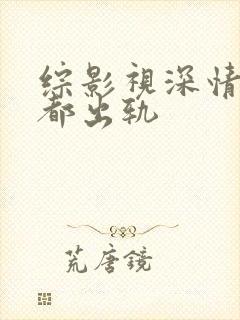 综影视深情
都出轨
荒唐镜